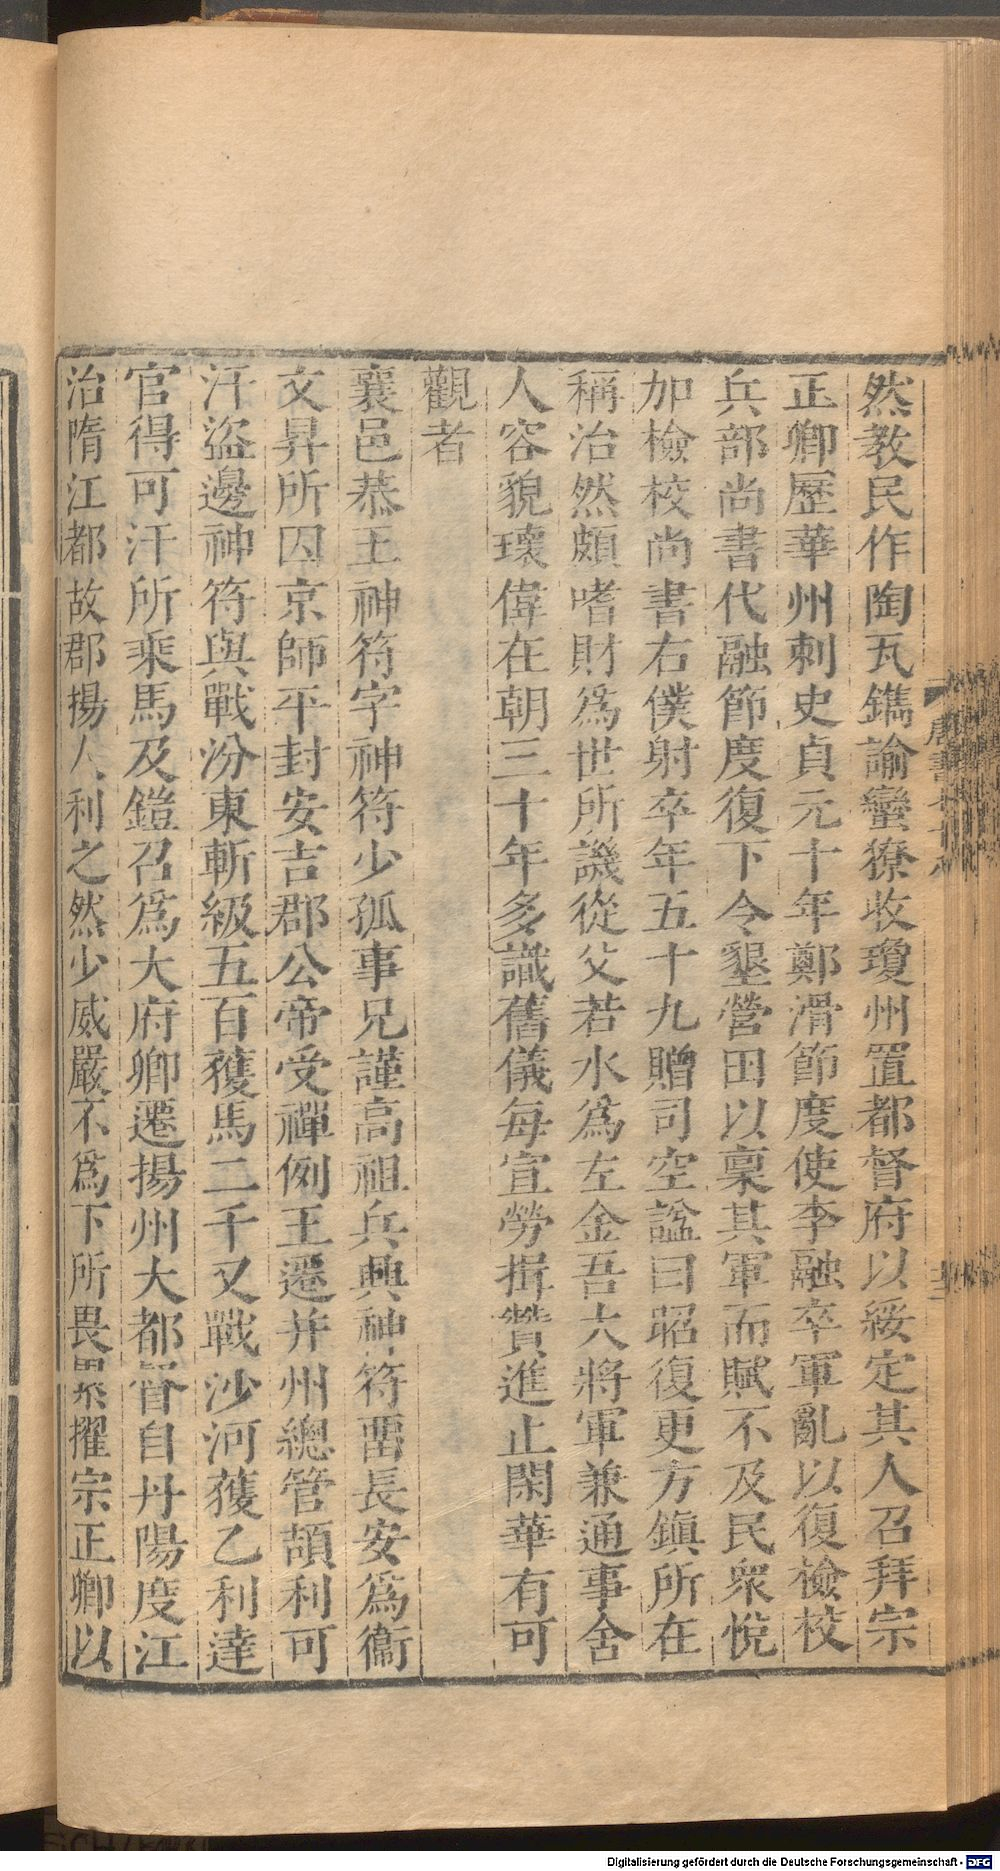 然教民作陶瓦鐫諭蠻獠收瓊州置都督府以綏定其人召拜宗
正卿歷華州刺史貞元十年鄭滑節度使李融卒軍亂以復檢校
兵部尚書代融節度復下令墾營田以稟其軍而賦不及民衆悅
加檢校尚書右僕射卒年五十九贈司空諡曰昭復更方鎮所在
稱治然頗嗜財爲世所譏從父若水爲左金吾大將軍兼通事舍
人容貌瓌偉在朝三十年多識舊儀每宣勞揖贊進止閑華有可
觀者
襄邑恭王神符字神符少孤事兄謹高祖兵興神符畱長安爲衞
文昇所囚京師平封安吉郡公帝受禪例王遷并州總管頡利可
汗盜邊神符與戰汾東斬級五百獲馬二千又戰沙河獲乙利達
官得可汗所乘馬及鎧召爲大府卿遷揚州大都督自丹陽度江
治隋江都故郡揚人利之然少威嚴不爲下所畏累擢宗正卿以
唐書七十八
Digitalisierung gefördert durch die Deutsche Forschungsgemeinschaft - DFG